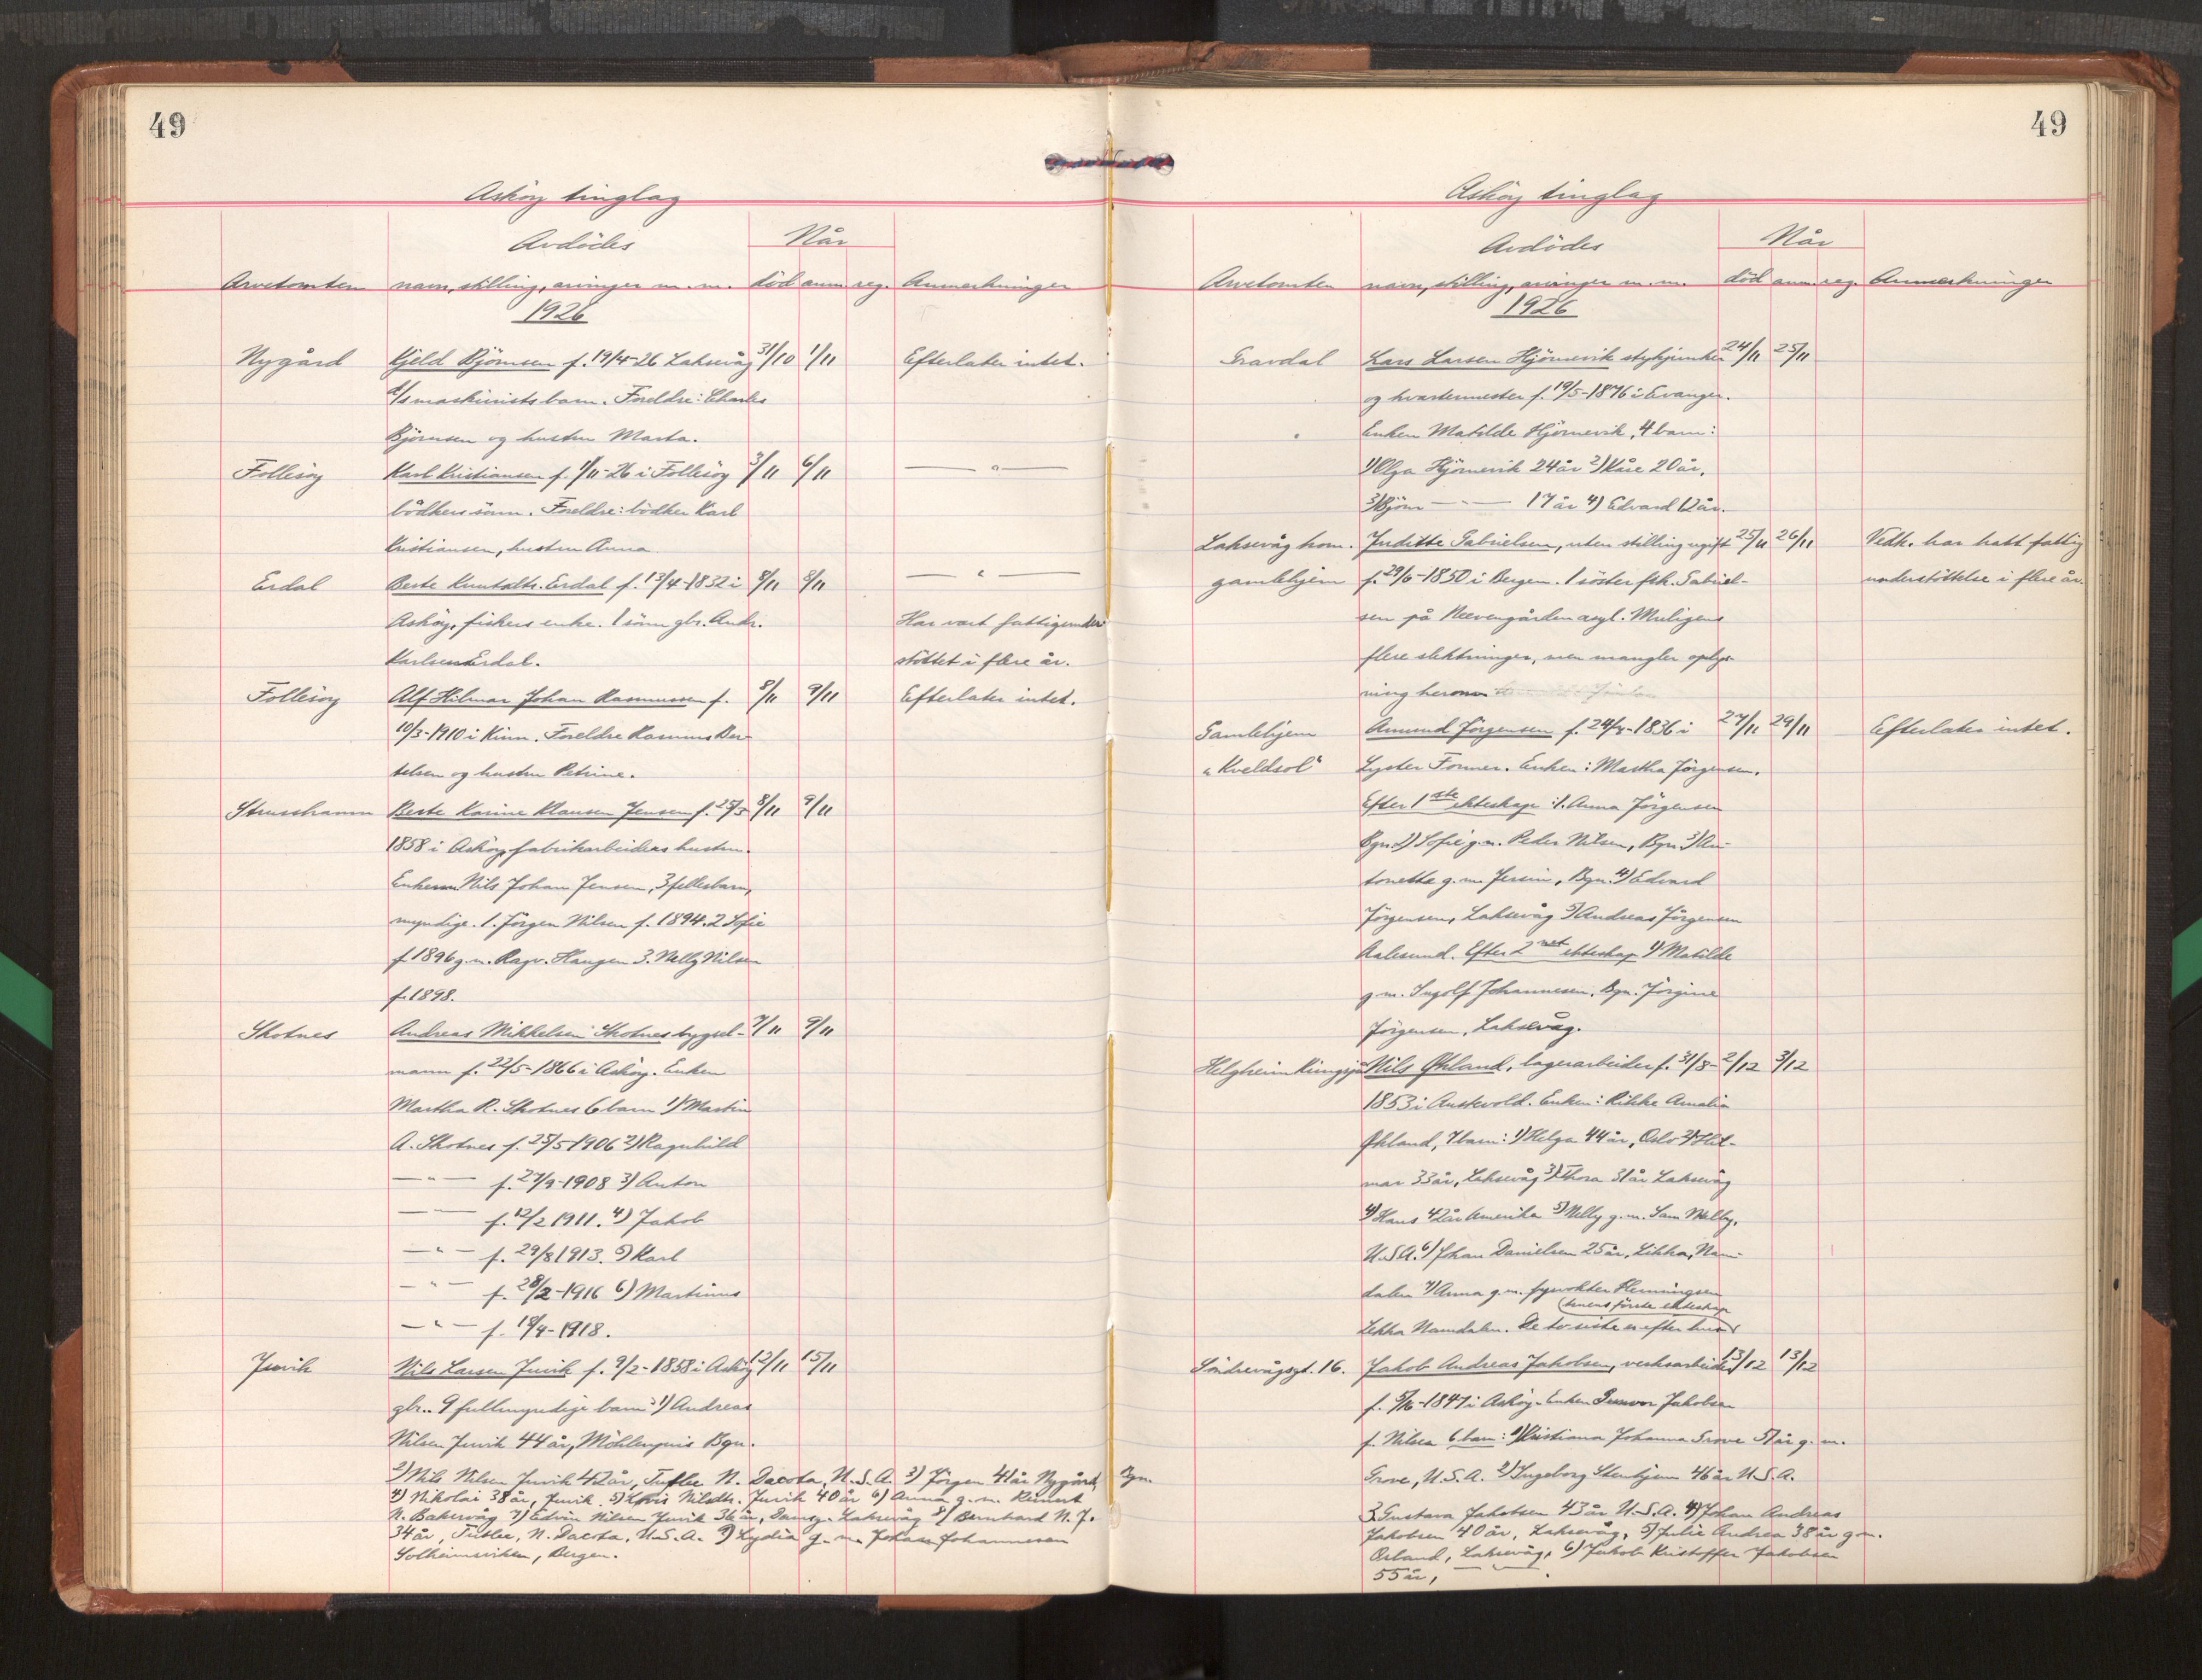 49
Askøy tinglag
Avdödes
Når
Arvetomten navn, stilling, arvinger m. m. död anm. reg. Anmerkninger
1926
Nygård Kjeld Björnsen f. 19/4-26 Laksevåg 31/10 1/11 Efterlater intet.
d/s maskinists barn. Foreldre: Charles
Björnsen og hustru Marta.
Follesöy Karl Kristiansen f. 1/11-26 i Follesöy 3/11 6/11 — " —
bödkers sönn. Foreldre: bödker Karl
Kristiansen, hustru Anna.
Erdal Berte Knutsdtr. Erdal f. 13/4-1832 i 8/11 8/11 — " —
Asköy, fiskers enke. 1 sönn gbr. Andr. Har vært fattigunder
Karlsen Erdal. stöttet i flere år.
Follesöy Alf Hilmar Johan Rasmussen f. 8/11 9/11 Efterlater intet.
10/3-1910 i Kinn. Foreldre Rasmus Ber-
telsen og hustru Petrine.
Strusshamn Berte Karine Klausen Jensen f. 25/5 8/11 9/11
1858 i Asköy, fabrikarbeiders hustru.
Enkem. Nils Johan Jensen, 3 fellesbarn,
myndige. 1. Jörgen Nilsen f. 1894. 2 Sofie
f. 1896 g.m. Ragv. Haugen 3. Nelly Nilsen
f. 1898.
Skotnes Andreas Mikkelsen Skotnes bygsel- 7/11 9/11
mann f. 22/5-1866 i Asköy. Enken
Martha R. Skotnes 6 barn 1) Martin
A. Skotnes f. 25/5 1906 2) Ragnhild
— " — f. 27/9-1908 3) Anton
— " — f. 12/2 1911. 4) Jakob
— " — f. 29/8 1913. 5) Karl
— " — f. 28/2-1916 6) Martinus
— " — f. 18/4-1918.
Juvik Nils Larsen Juvik f. 9/2-1858 i Asköy 12/11 15/11
gbr. 9 fullmyndige barn: 1) Andreas
Nilsen Juvik 44 år, Möhlenpris Bgn.
2) Nils Nilsen Juvik 42 år, N. Dacota, U.S.A. 3) Jörgen 41 år Nygård, Bgn.
4) Nikolai 38 år, Juvik. 5) Nilsdtr. Juvik 40 år 6) Anna g.m.
N. Bakervåg 7) Edvin Nilsen Juvik 36 år, Damsg. Laksevåg 8) Bernhard N. J.
34 år, N. Dacota, U.S.A. 9) Lydia g.m. Johan Johannesen
Solheimsviken, Bergen.
49
Askøy tinglag
Avdödes
Når
Arvetomten navn, stilling, arvinger m. m. död anm. reg. Anmerkninger
1926
Gravdal Lars Larsen Hjörnevik stykjunker 24/11 25/11
og kvartermester f. 19/5-1876 i Evanger.
Enken Matilde Hjörnevik, 4 barn:
1) Olga Hjörnevik 24 år 2) Kåre 20 år,
3) Björn — " — 17 år 4) Edvard 12 år.
Laksevåg kom. Juditte Gabrielsen, uten stilling ugift 25/11 26/11 Vedk. har hatt fattig
gamlehjem f. 29/6-1850 i Bergen. 1 söster frk. Gabriel- understöttelse i flere år.
sen på Neevengården asyl. Muligens
flere slektninger, men mangler oplys-
ning herom
Gamlehjem Amund Jörgensen f. 24/4-1836 i 27/11 29/11 Efterlater intet.
"Kveldsol" Lyster Fanner. Enken: Martha Jörgensen.
Efter 1ste ekteskap: 1. Anna Jörgensen
Bgn 2) Sofie g.m. Peder Nilsen, Bgn 3) An-
tonette g.m. Jersin, Bgn. 4) Edvard
Jörgensen, Laksevåg 5) Andreas Jörgensen
Aalesund. Efter 2net ekteskap 1) Matilde
g.m. Ingolf Johannesen, Bgn. Jörgine
Jörgensen, Laksevåg.
Helgheim Kringsjå Nils Økland, lagerarbeider f. 31/8- 2/12 3/12
1853 i Austevold. Enken: Rikke Amalia
Økland, 7 barn: 1) Helga 44 år, Oslo 2) Hil-
mar 33 år, Laksevåg 3) Thora 31 år Laksevåg
4) Hans 42 år Amerika 5) Milly g.m. Sam Melby,
U.S.A. 6) Johan Danielsen 25 år, Lekka, Nam-
dalen 7) Anna g.m. fyrvokter Flemmingsen
Lekka Namdalen. De to siste er efter hus-
truens förste ekteskap
Söndrevågsgt. 16. Jakob Andreas Jakobsen, verksarbeider 13/12 13/12
f. 5/10-1847 i Asköy. Enken Gunvor Jakobsen
f. Nilsen 6 barn: 1) Kristiana Johanna Grove 51 år g.m.
Grove, U.S.A. 2) Ingeborg Stenhjem 46 år U.S.A.
3. Gustava Jakobsen 43 år U.S.A. 4) Johan Andreas
Jakobsen 40 år, Laksevåg, 5) Julie Andrea 38 år g.m.
Osland, Laksevåg, 6) Jakob Kristoffer Jakobsen
55 år, — " —